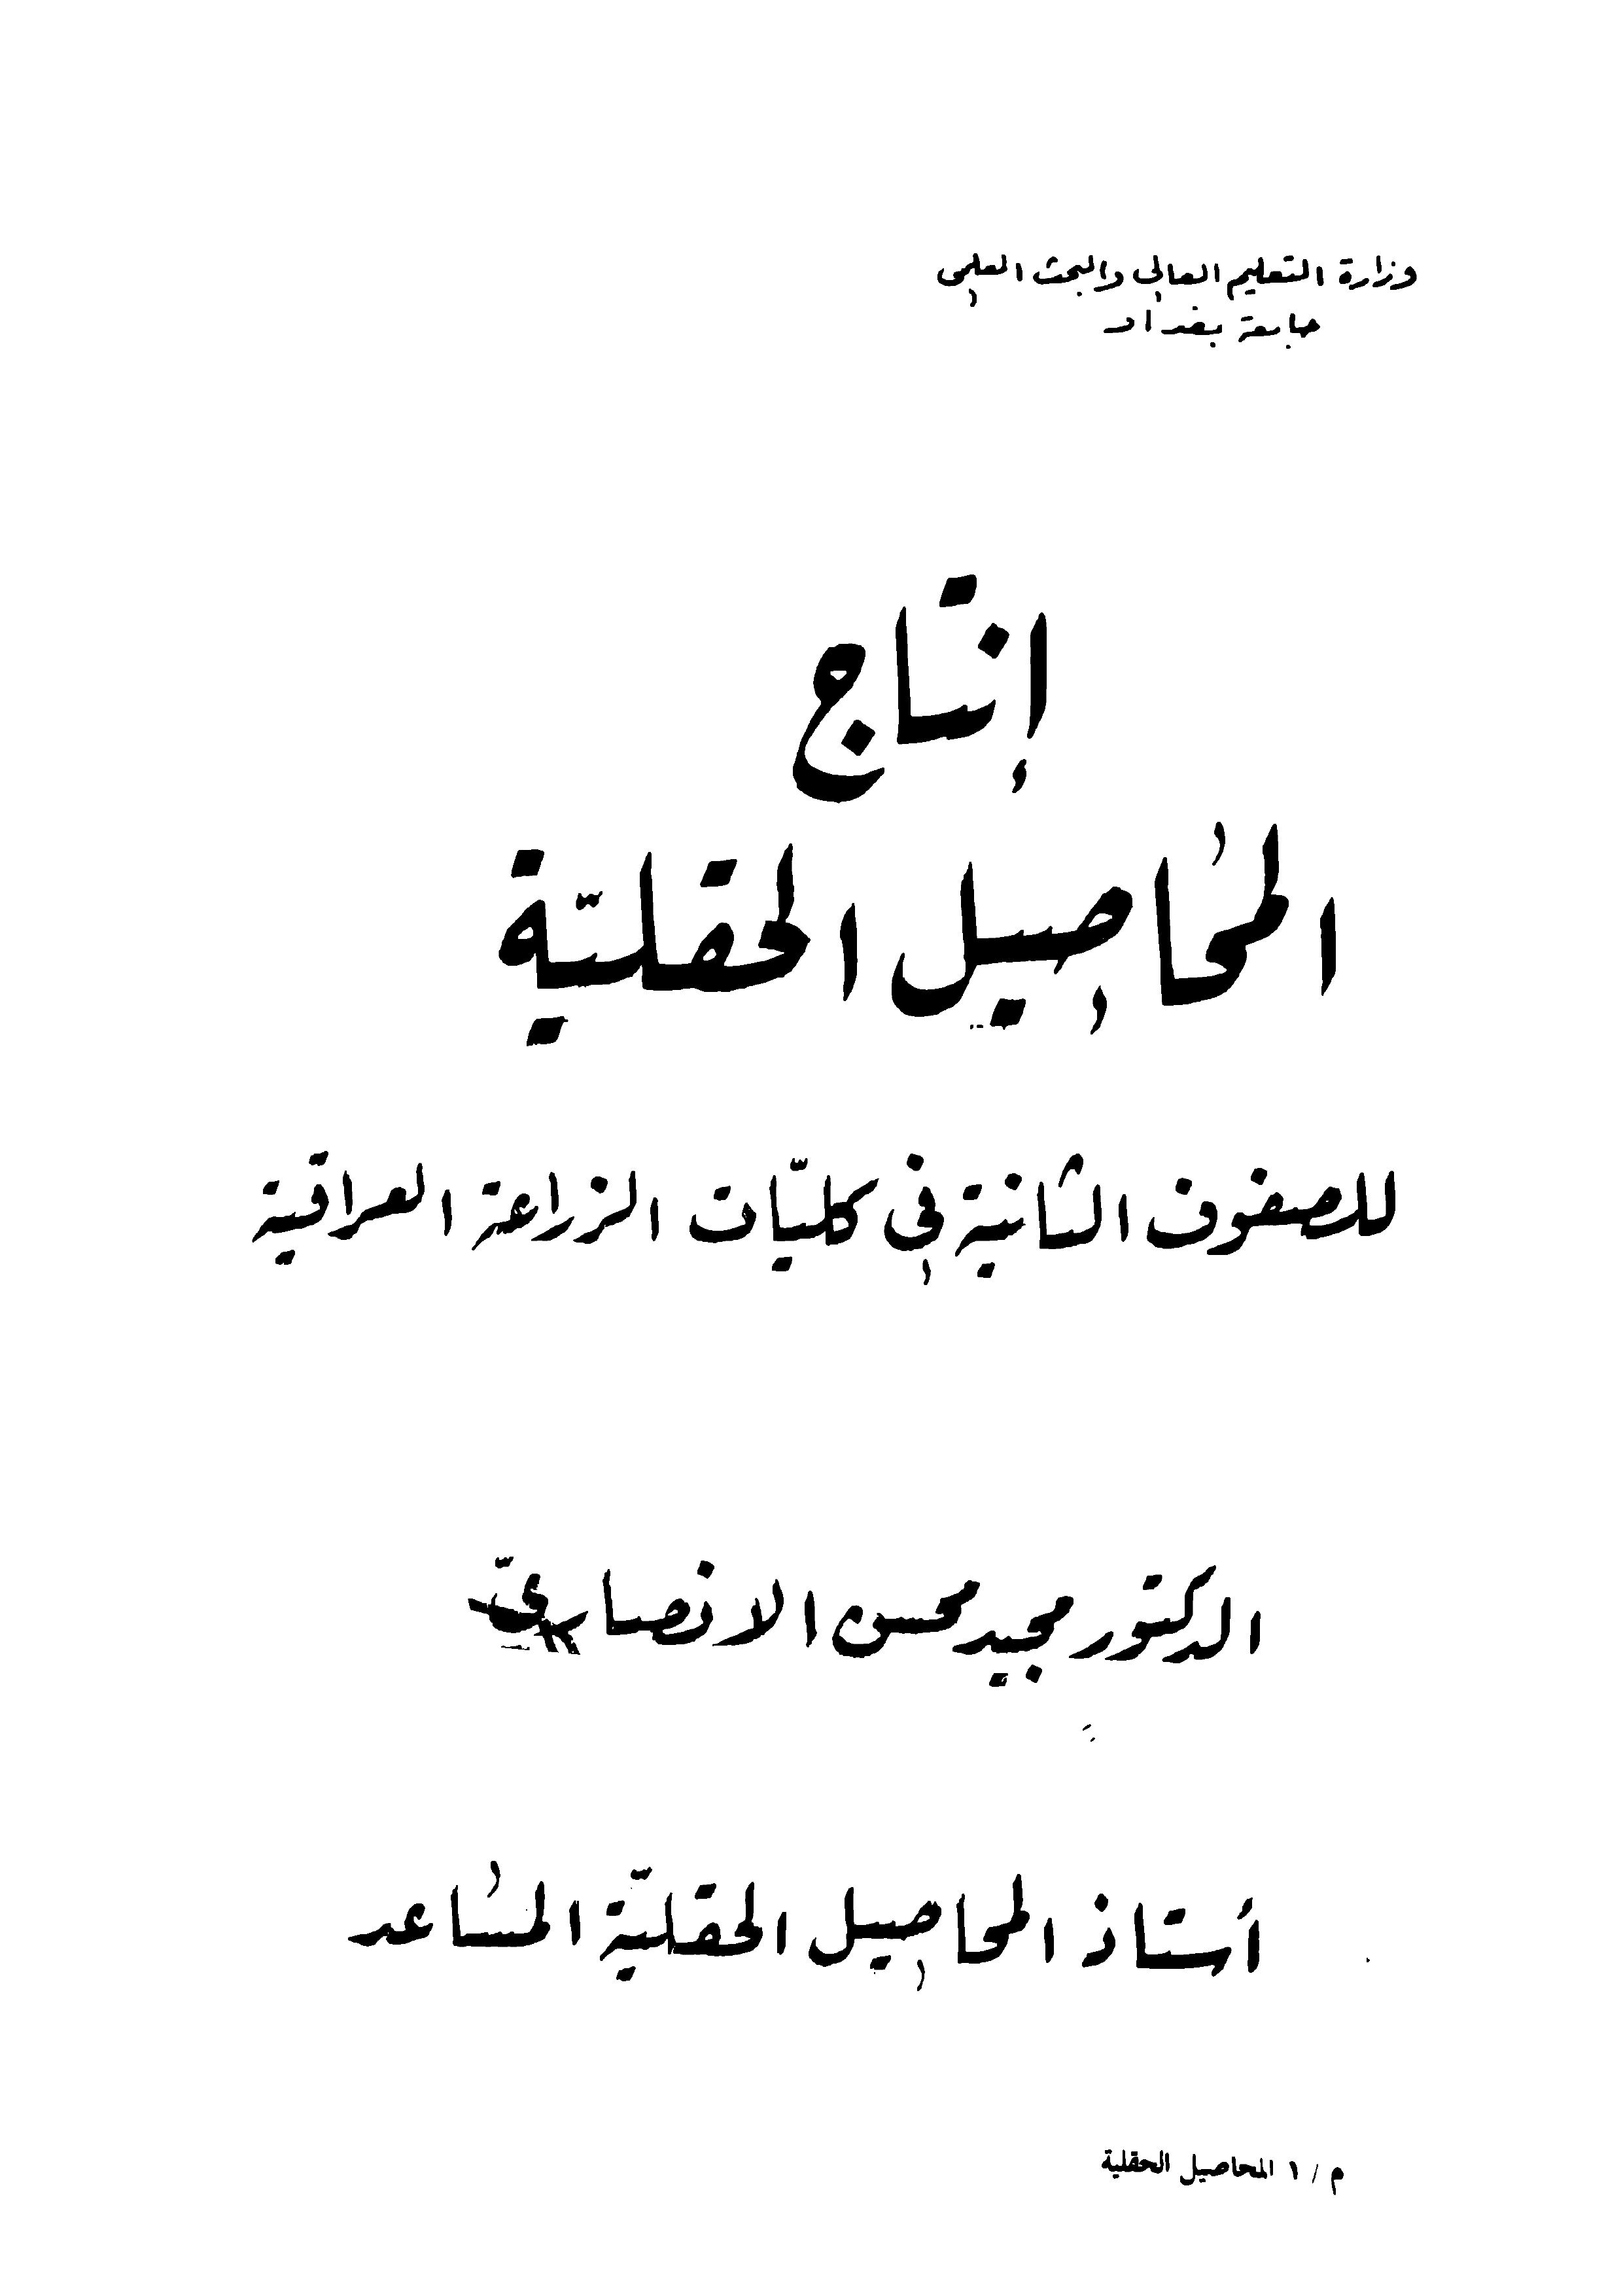 وزارة التعليم العالي والبحث العلمي
جامعة بغداد
إنتاج
المحاصيل الحقليّة
للصفوف الثانية في كليّات الزراعة العراقية
الدكتور مجيد محسن الانصاري
أستاذ المحاصيل الحقليّة المساعد
م / ١ المحاصيل الحقلية